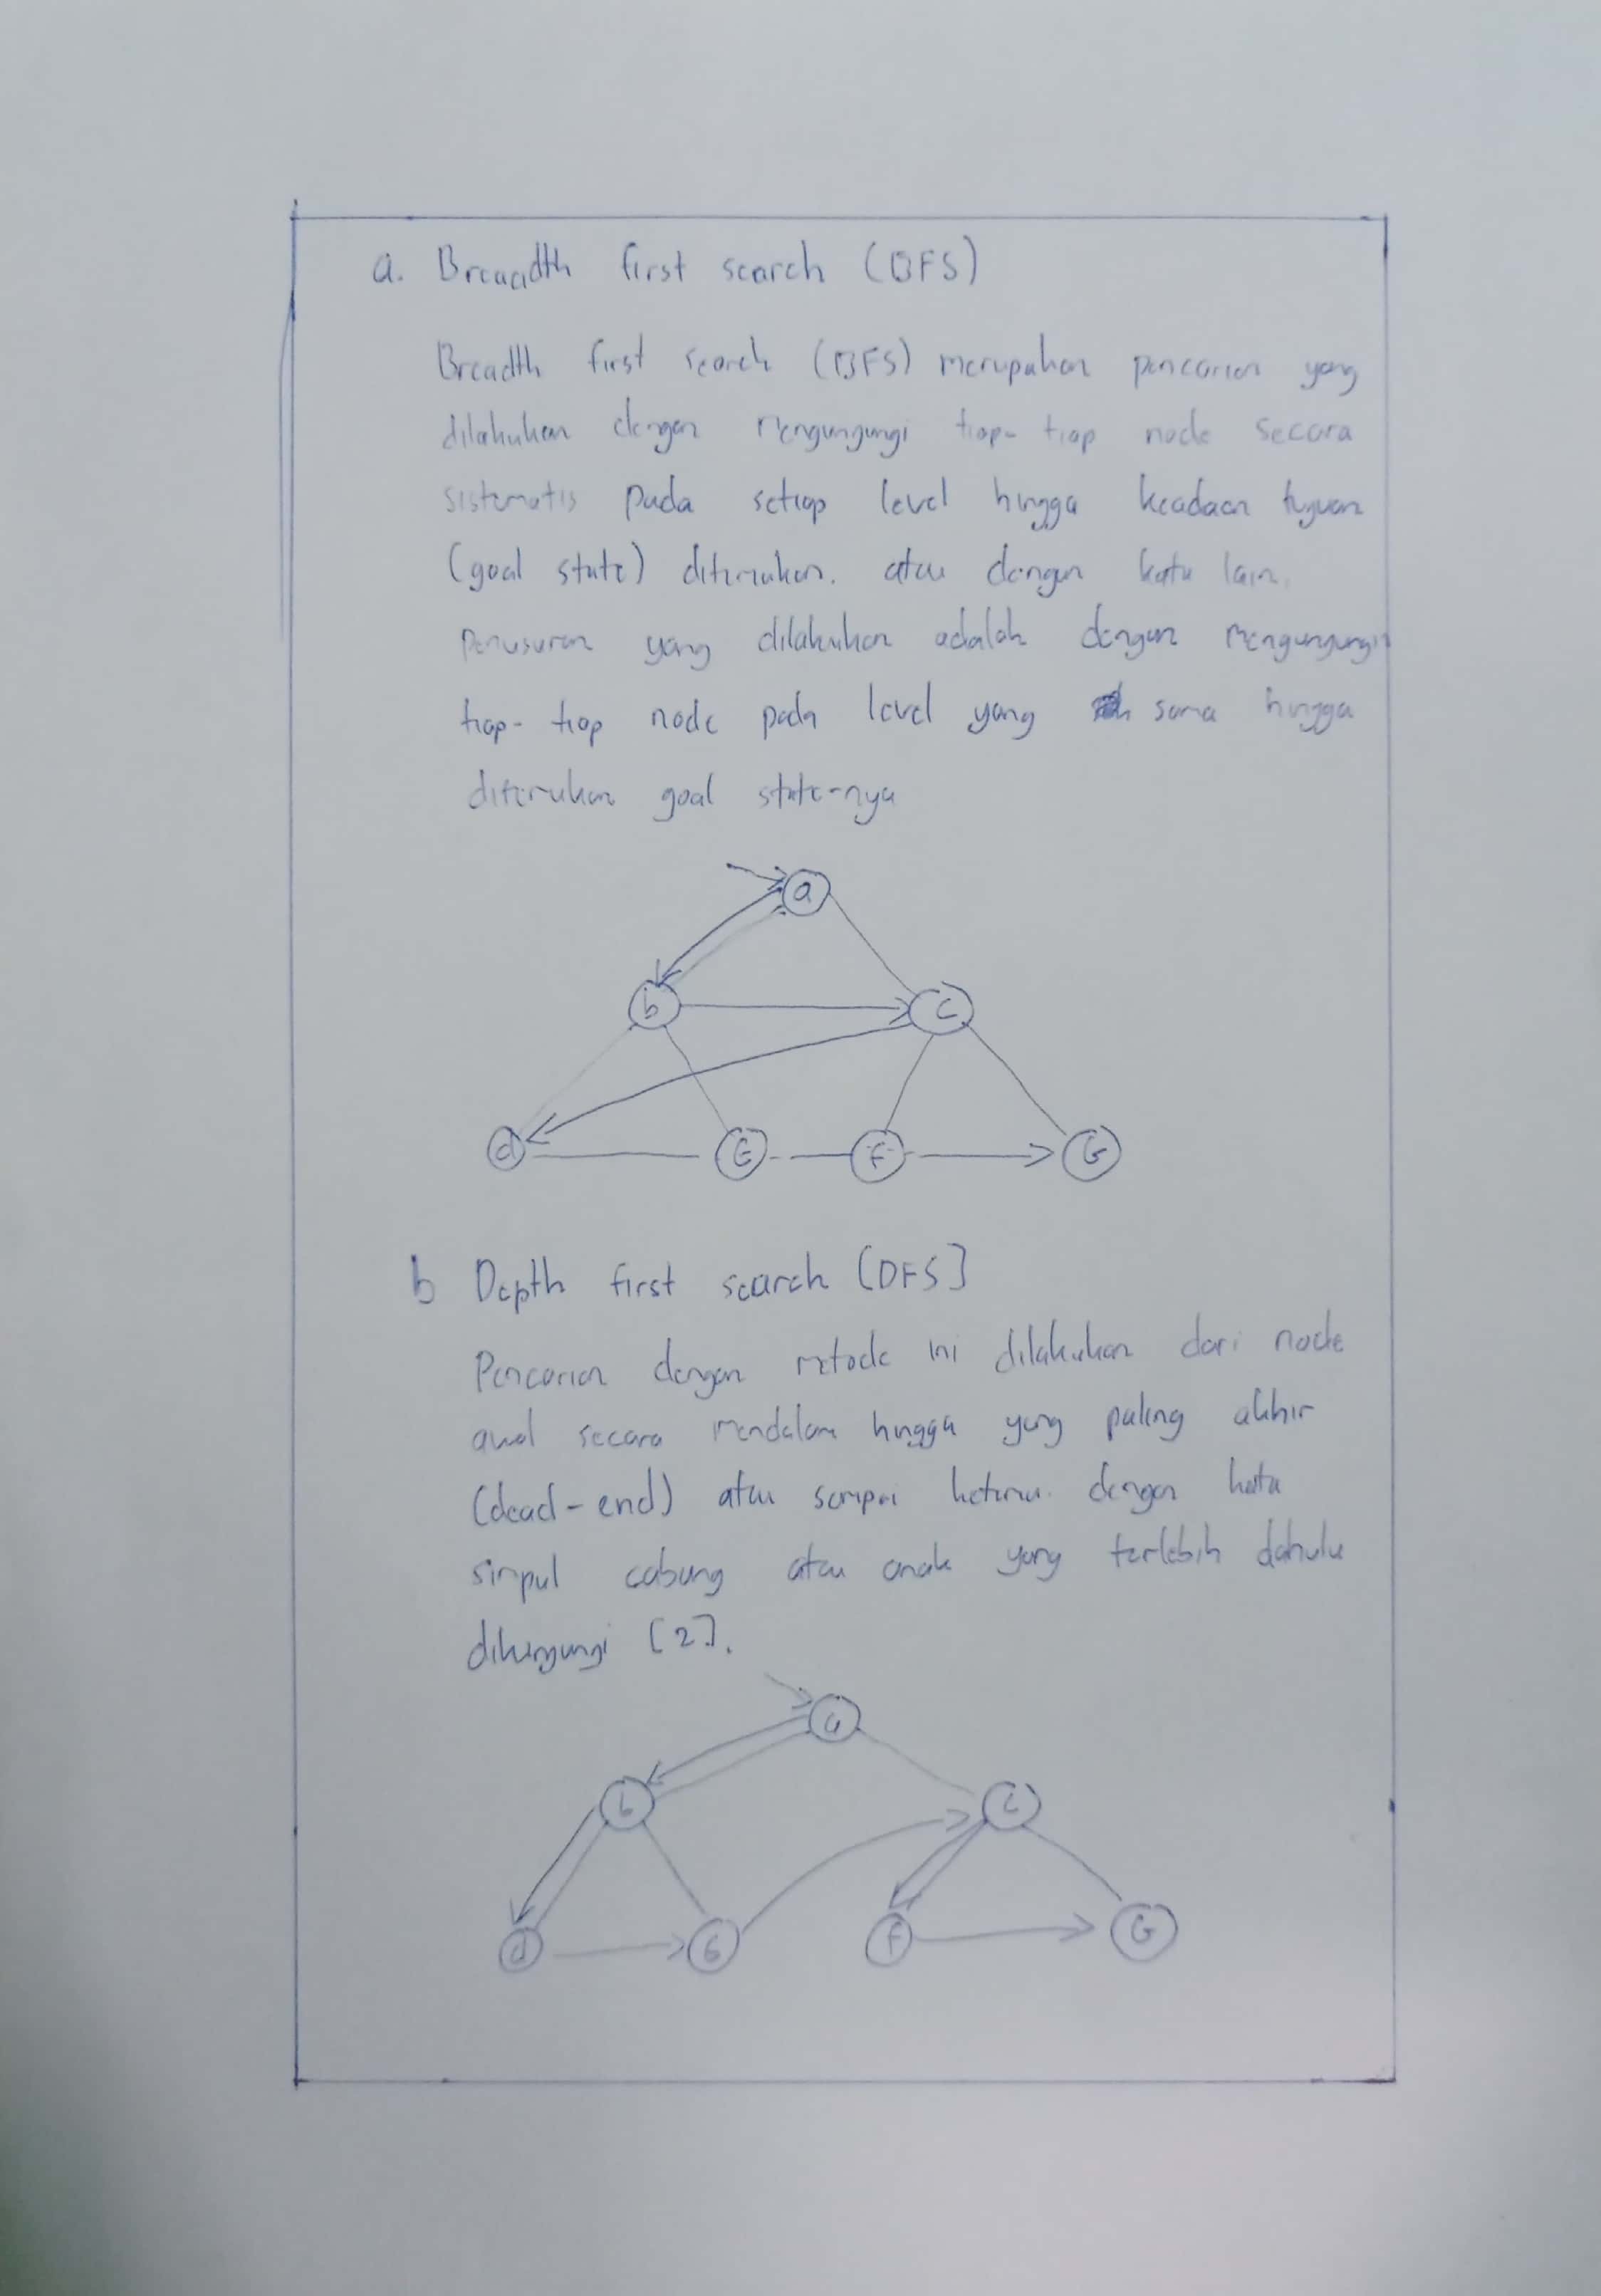 a. Breaadth first search (BFS)
Breadth first search (BFS) merupakan pencarian yang
dilakukan dengan mengungungi tiap-tiap node secara
sistematis pada setiap level hingga keadaan tujuan
(goal state) ditemukan. atau dengan kata lain.
Penusuran yang dilakukan adalah dengan mengungungi
tiap-tiap node pada level yang sama hingga
ditemukan goal state-nya
a
b C
d E F G
b Depth first search [DFS]
Pencarian dengan metode ini dilakukan dari node
awal secara mendalam hingga yang paling akhir
(dead-end) atau sampai ketemu. dengan kata
simpul cabang atau anak yang terlebih dahulu
dikungungi [2].
a
b C
d F G